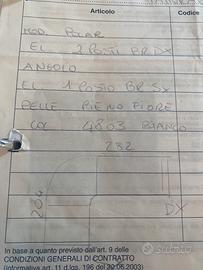 Articolo
Codice
MOD. POLAR
EL 2 POSTI BR DX
ANGOLO
EL 1 POSTO BR SX
PELLE PIENO FIORE
COL 4803 BIANCO
282
204
DX
In base a quanto previsto dall'art. 9 delle
CONDIZIONI GENERALI DI CONTRATTO
(informativa art. 11 d.lgs. 196 del 30.06.2003)
subito